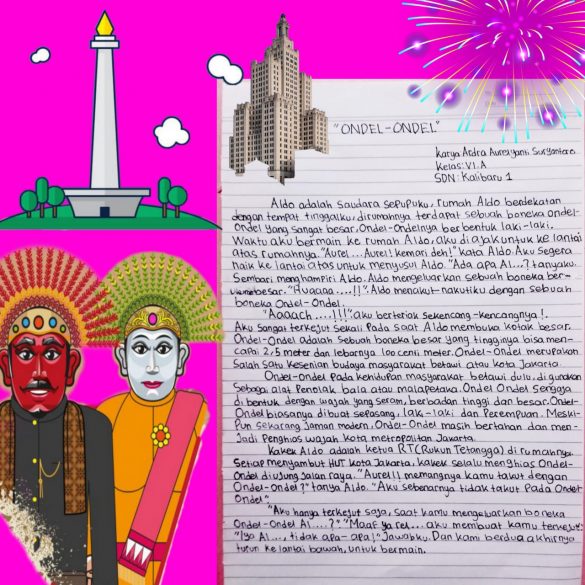 "ONDEL-ONDEL"
Karya Ardra Aurelyanti Suryantara
Kelas: VI.A
SDN: Kalibaru 1
Aldo adalah Saudara sepupuku, rumah Aldo berdekatan
dengan tempat tinggalku, dirumahnya terdapat sebuah boneka ondel-
Ondel yang sangat besar, Ondel-Ondelnya berbentuk laki-laki.
Waktu aku bermain ke rumah Aldo, aku di ajak untuk ke lantai
atas rumahnya. "Aurel... Aurel! Kemari deh!" kata Aldo. Aku Segera
naik ke lantai atas untuk menyusul Aldo. "Ada apa Al...? tanyaku.
Sembari menghampiri Aldo. Aldo mengeluarkan sebuah boneka ber-
besar. "Huaaaa....!!". Aldo menakut-nakutiku dengan sebuah
boneka Ondel-Ondel.
"Aaaach....!!!" aku berteriak Sekencang-kencangnya!.
Aku Sangat terkejut Sekali Pada Saat Aldo membuka kotak besar.
Ondel-Ondel adalah Sebuah boneka besar yang tingginya bisa men-
capai 2,5 meter dan lebarnya 100 centi meter. Ondel-Ondel merupakan
Salah Satu kesenian budaya masyarakat betawi atau kota Jakarta.
Ondel-Ondel Pada kehidupan masyarakat betawi dulu, di gunakan
Sebagai alat Penolak bala atau malapetaka. Ondel Ondel Sengaja
di bentuk dengan wajah yang seram, berbadan tinggi dan besar. Ondel-
Ondel biasanya dibuat sepasang, laki-laki dan Perempuan. Meski-
Pun sekarang Jaman modern, Ondel-Ondel masih bertahan dan men-
Jadi Penghias wajah kota metropolitan Jakarta.
Kakek Aldo adalah ketua RT(Rukun Tetangga) di rumahnya.
Setiap menyambut HUT kota Jakarta, kakek selalu menghias Ondel-
Ondel di ujung Jalan raya. "Aurel!! memangnya kamu takut dengan
Ondel-Ondel?" tanya Aldo. "Aku sebenarnya tidak takut Pada Ondel
Ondel".
"Aku hanya terkejut saja, Saat kamu mengeluarkan boneka
Ondel-Ondel Al....?." "Maaf ya rel... aku membuat kamu terkejut"
"Iya Al..., tidak apa-apa!" Jawabku. Dan kami berdua akhirnya
turun ke lantai bawah, untuk bermain.